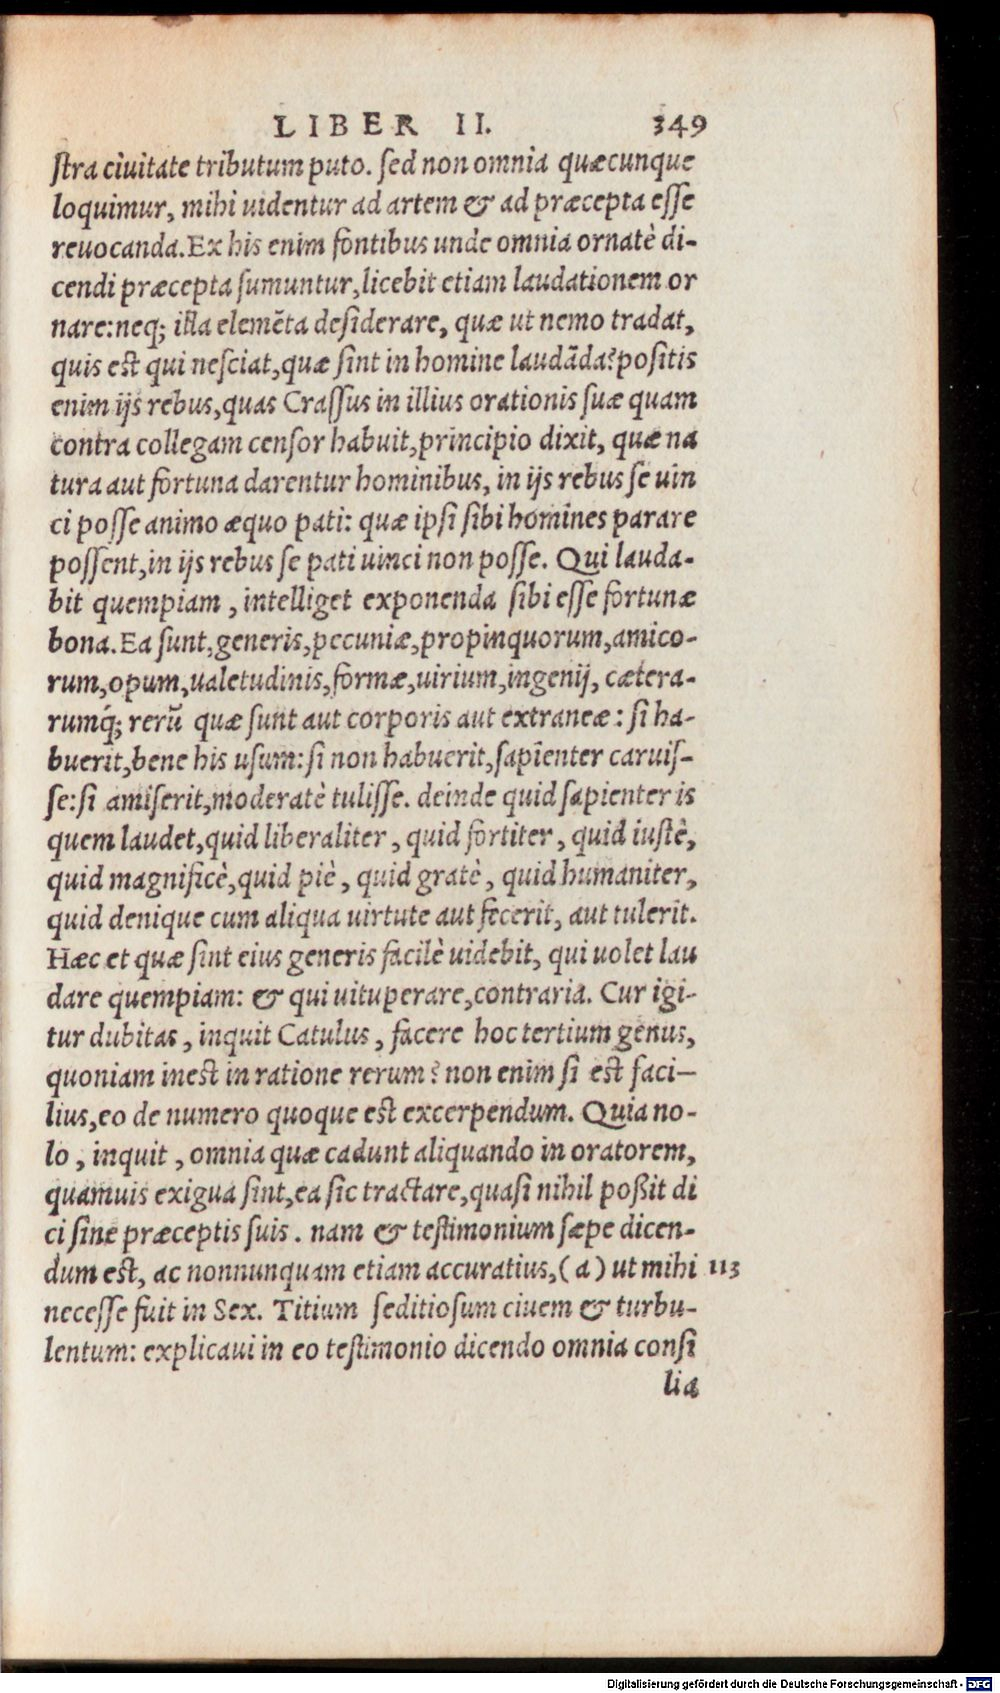 LIBER II. 349
ſtra ciuitate tributum puto. ſed non omnia quæcunque
loquimur, mihi uidentur ad artem & ad præcepta eſſe
reuocanda. Ex his enim fontibus unde omnia ornatè di-
cendi præcepta ſumuntur, licebit etiam laudationem or
nare: neq; illa elemēta deſiderare, quæ ut nemo tradat,
quis eſt qui neſciat, quæ ſint in homine laudāda? poſitis
enim ijs rebus, quas Craſſus in illius orationis ſuæ quam
contra collegam cenſor habuit, principio dixit, quæ na
tura aut fortuna darentur hominibus, in ijs rebus ſe uin
ci poſſe animo æquo pati: quæ ipſi ſibi homines parare
poſſent, in ijs rebus ſe pati uinci non poſſe. Qui lauda-
bit quempiam, intelliget exponenda ſibi eſſe fortunæ
bona. Ea ſunt, generis, pecuniæ, propinquorum, amico-
rum, opum, ualetudinis, formæ, uirium, ingenij, cætera-
rumq́; rerū quæ ſunt aut corporis aut extraneæ: ſi ha-
buerit, bene his uſum: ſi non habuerit, ſapienter caruiſ-
ſe: ſi amiſerit, moderatè tuliſſe. deinde quid ſapienter is
quem laudet, quid liberaliter, quid fortiter, quid iuſtè,
quid magnificè, quid piè, quid gratè, quid humaniter,
quid denique cum aliqua uirtute aut fecerit, aut tulerit.
Hæc et quæ ſint eius generis facilè uidebit, qui uolet lau
dare quempiam: & qui uituperare, contraria. Cur igi-
tur dubitas, inquit Catulus, facere hoc tertium genus,
quoniam ineſt in ratione rerum? non enim ſi eſt faci-
lius, eo de numero quoque eſt excerpendum. Quia no-
lo, inquit, omnia quæ cadunt aliquando in oratorem,
quamuis exigua ſint, ea ſic tractare, quaſi nihil poßit di
ci ſine præceptis ſuis. nam & teſtimonium ſæpe dicen-
dum eſt, ac nonnunquam etiam accuratius, (a) ut mihi 113
neceſſe fuit in Sex. Titium ſeditioſum ciuem & turbu-
lentum: explicaui in eo teſtimonio dicendo omnia conſi
lia
Digitalisierung gefördert durch die Deutsche Forschungsgemeinschaft - DFG